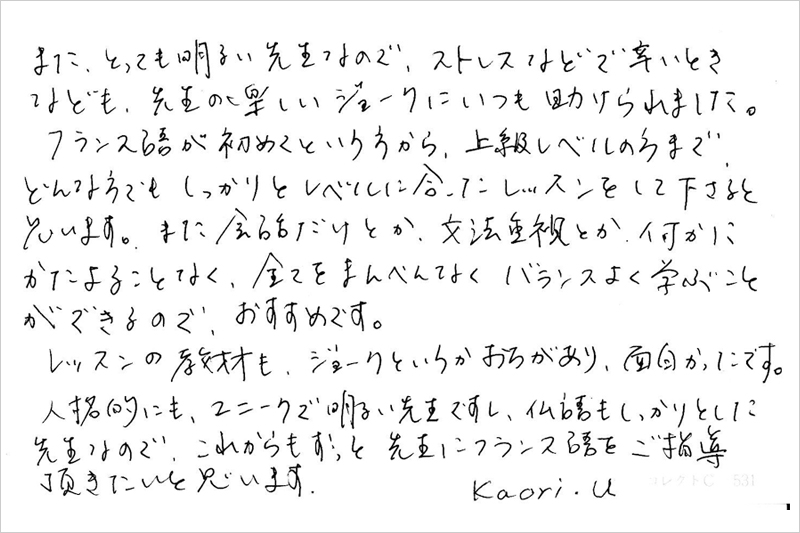 また、とっても明るい先生なので、ストレスなどで辛いとき
なども、先生の楽しいジョークにいつも助けられました。
フランス語が初めてという方から、上級レベルの方まで
どんな方でもしっかりとレベルに合ったレッスンをして下さると
思います。また会話だけとか、文法重視とか、何かに
かたよることなく、全てをまんべんなくバランスよく学ぶこと
ができるので、おすすめです。
レッスンの教材も、ジョークというかおちがあり、面白かったです。
人格的にも、ユニークで明るい先生ですし、仏語もしっかりとした
先生なので、これからもずっと先生にフランス語をご指導
頂きたいと思います.
Kaori.U
コレクトC 531